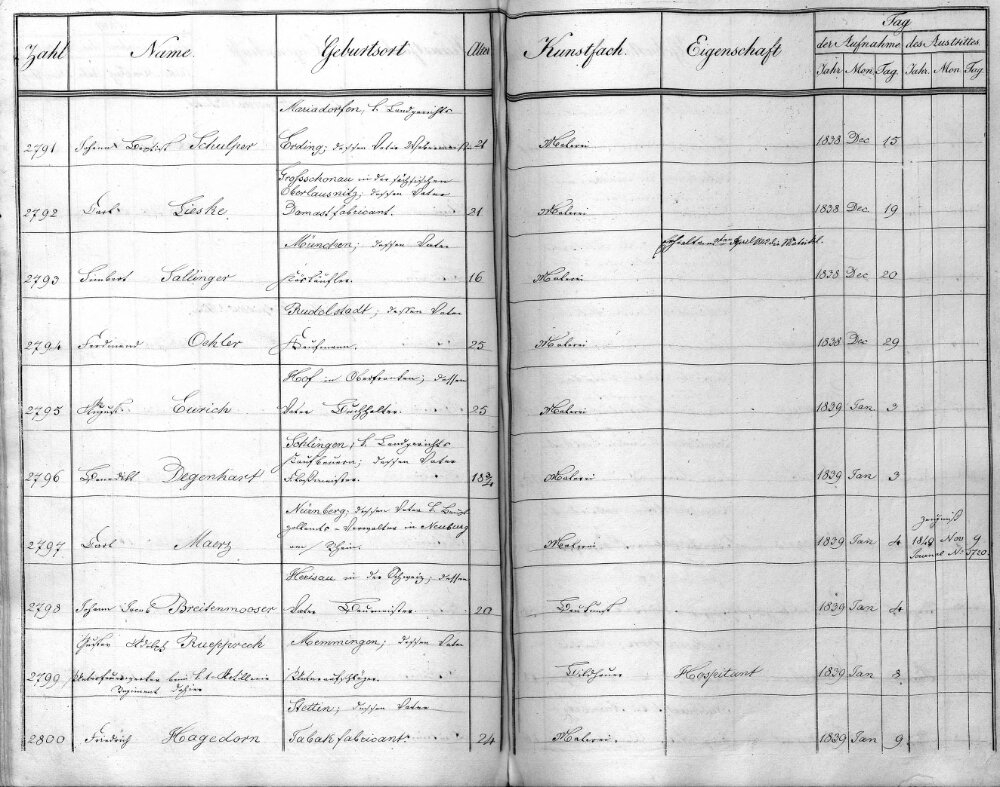 Zahl Name. Geburtsort Alter Kunstfach. Eigenschaft Tag
der Aufnahme des Austrittes
Jahr Mon Tag Jahr. Mon Tag
Mariadorfen, k. Landgerichts
2791 Johann Baptist Schulper Erding; dessen Vater 21 Malerei 1838 Dec 15
Grosschonau in der sächsischen
Oberlausnitz; dessen Vater
2792 Carl Lieske. Damastfabricant. 21 Malerei 1838 Dec 19
München; dessen Vater
2793 Sallinger 16 Malerei 1838 Dec 20
Rudolstadt; dessen Vater
2794 Ferdinand Oehler Kaufmann. 25 Malerei 1838 Dec 29
Hof in Oberfranken; dessen
2795 August Eurich Vater Buchhalter 25 Malerei 1839 Jan 3
Schlingen, k. Landgerichts
Kaufbeuern; dessen Vater
2796 Benedikt Degenhart 18 3/4 Malerei 1839 Jan 3
Nürnberg; dessen Vater k.
Verwalter in Neuburg
2797 Carl Maerz am Rhein. Malerei 1839 Jan 4
Zeugniß
Nov 9
Journal No 5720.
Herisau in der Schweiz; dessen
2798 Johann Breitenmooser Vater Baumeister 20 Baukunst 1839 Jan 4
Gustav Adolph Rueppreck Memmingen; dessen Vater
2799 beim k. 1. Artillerie Bildhauer Hospitant 1839 Jan 8
Regiment dahier
Stettin; dessen Vater
2800 Friedrich Hagedorn Tabakfabricant. 24 Malerei 1839 Jan 9